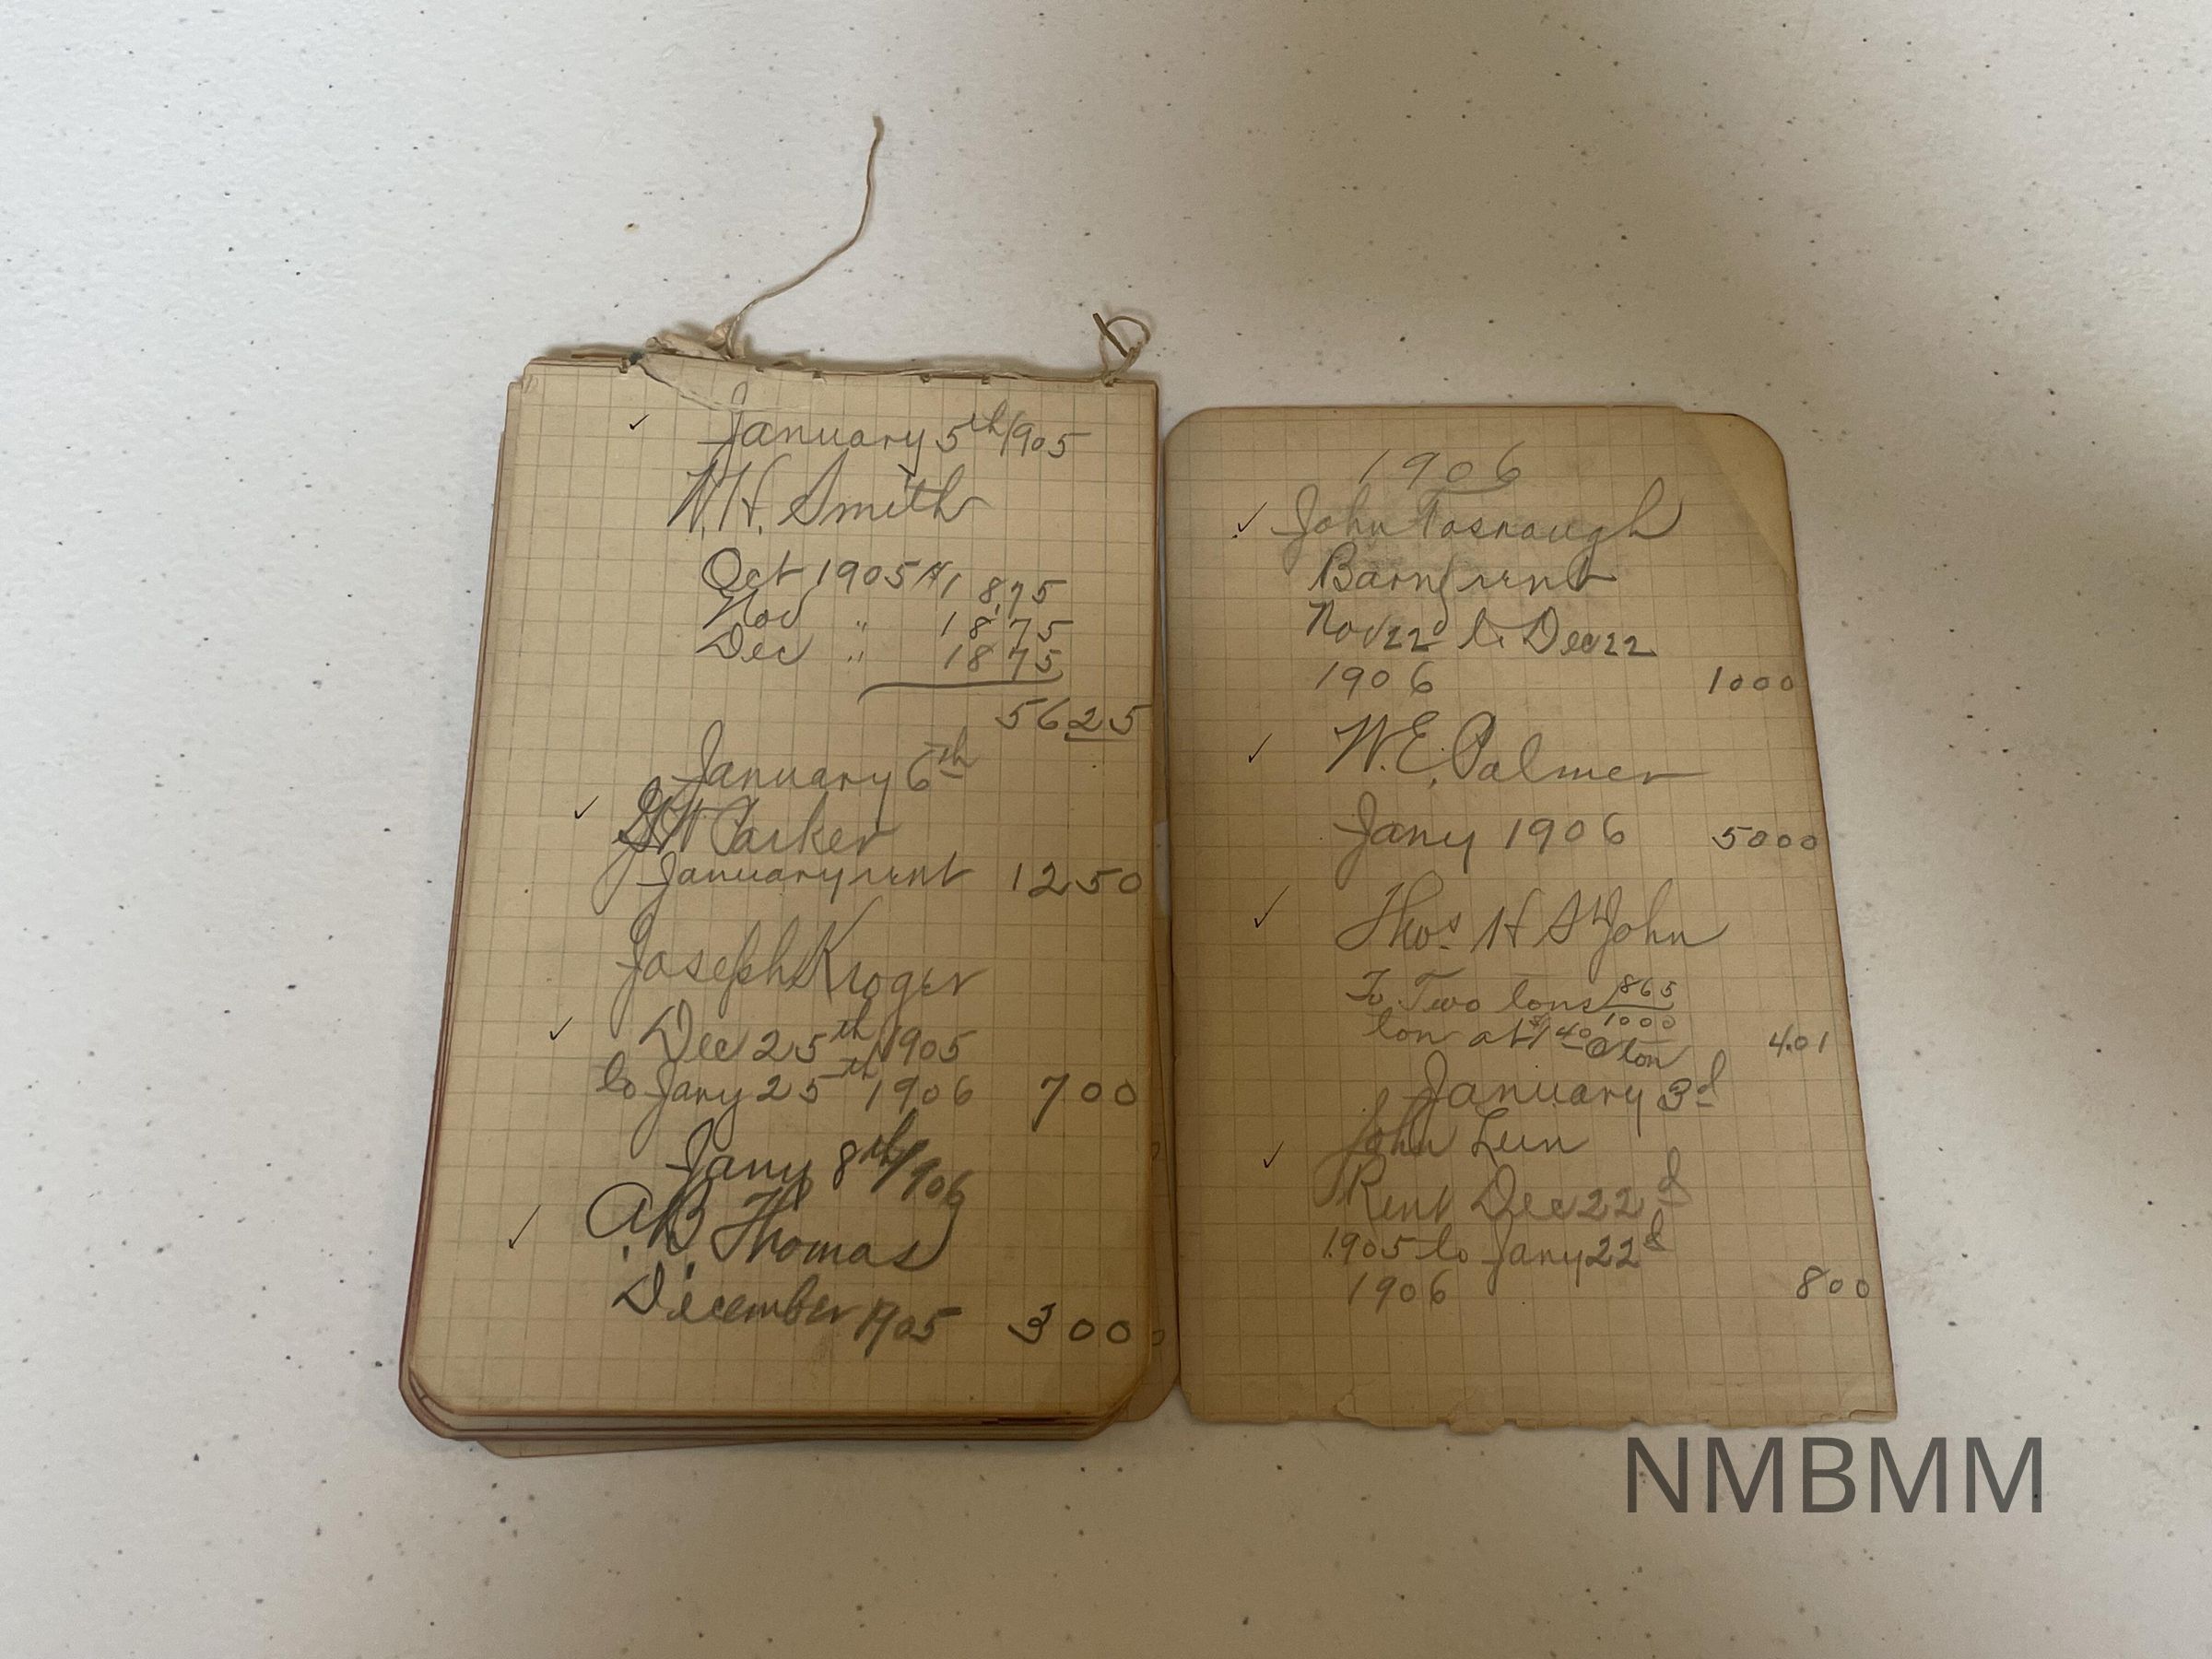 January 5th/1905
W.H. Smith
Oct 1905 $18.75
Nov " 18 75
Dec " 18 75
56 25
January 6th
G W Parker
January rent 12 50
Joseph Kroger
Dec 25th 1905
to Jany 25th 1906 7 00
Jany 8th/1906
A.B. Thomas
December 1905 3 00
1906
John
Barn rent
Nov 22d to Dec 22
1906 10 00
W.E. Palmer
Jany 1906 50 00
Thos H St John
To Two tons 865/1000
ton at $1 40 a ton 4.01
January 3d
John
Rent Dec 22d
1905 to Jany 22d
1906 8 00
NMBMM